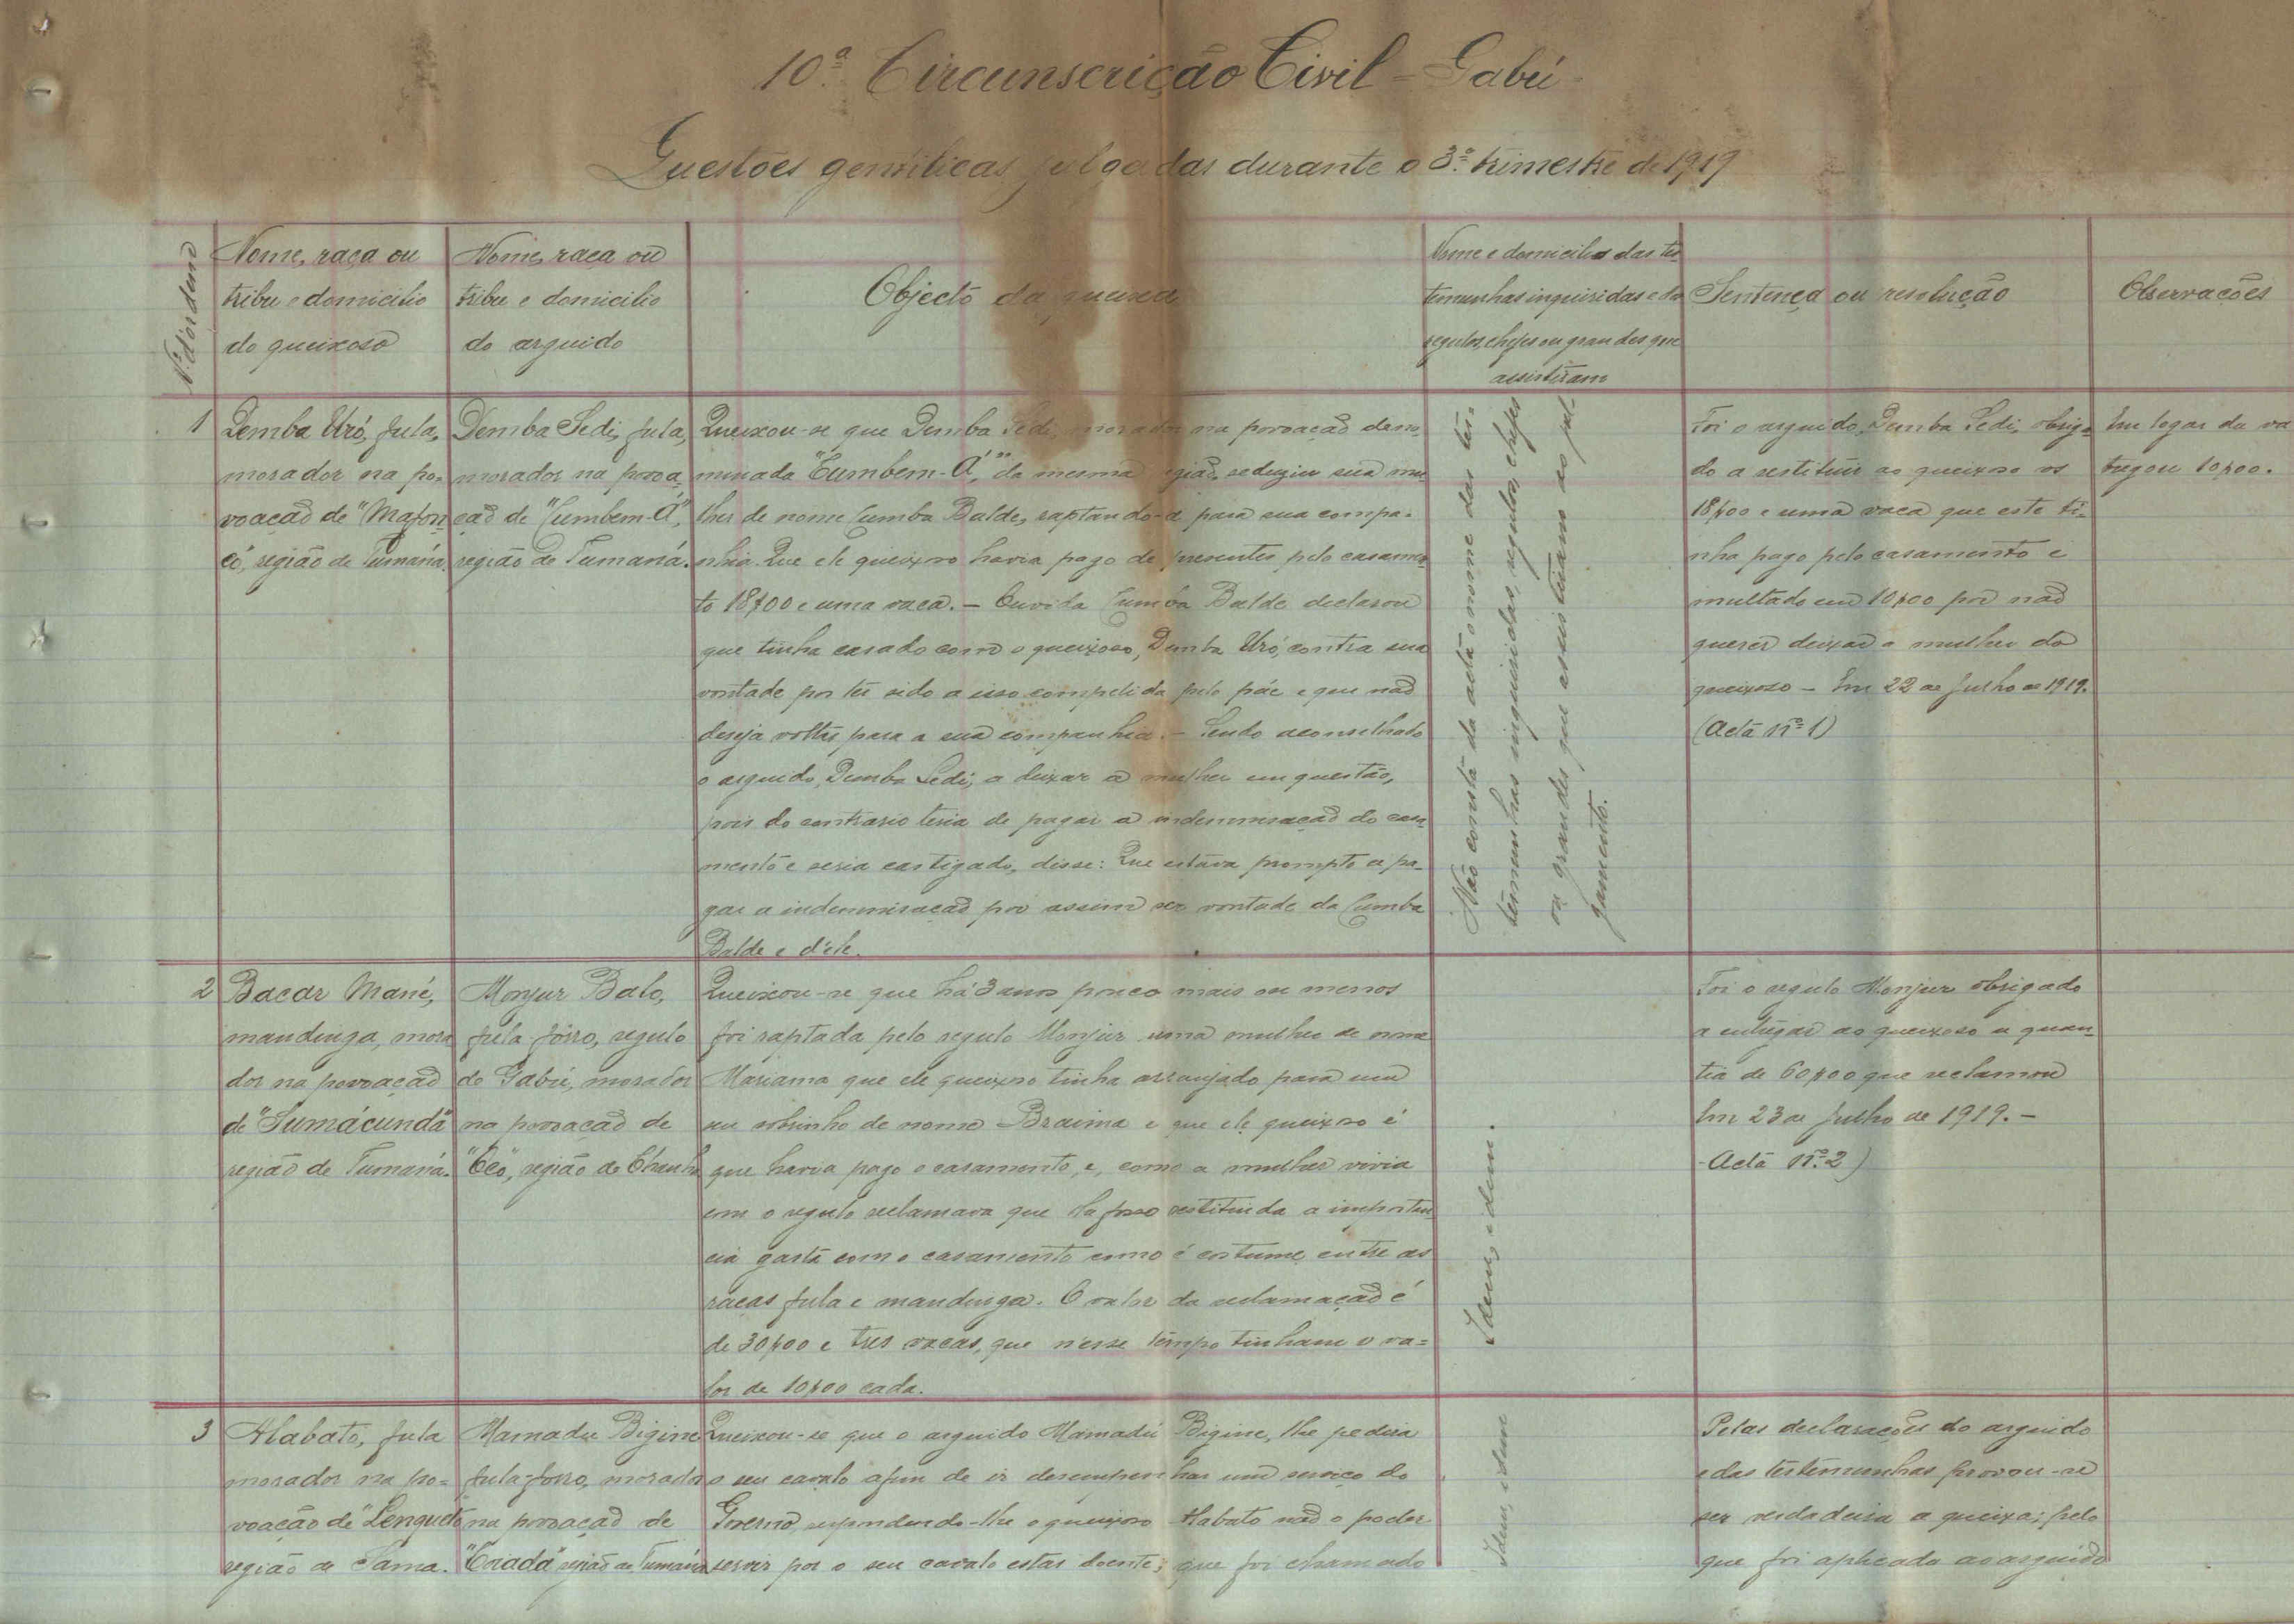 10ª Circunscrição Civil - Gabú -
Questões gentilicas julgadas durante o 3º trimestre de 1919
Nº d'ordem
Nome, raça ou
tribu e domicilio
do queixoso
Nome, raça ou
tribu e domicilio
do arguido
Objecto da queixa
Nome e domicilio das tes-
temunhas inquiridas e do
regulos, chefes ou grandes que
assistiram
Sentença ou resolução
Observações
1
Demba Uró, fula,
morador na po-
voação de "Mafon-
có", região de Tumaná.
Demba Sedi, fula,
morador na povoa-
ção de "Cumbem-Á",
região de Tumaná.
Queixou-se que Demba Sedi, morador na povoação deno-
minada "Cumbem-Á", da mesma região, seduziu sua mu-
lher de nome Cumba Balde, raptando-a para sua compa-
nhia. Que ele queixoso havia pago de presentes pelo casamen-
to 18$00 e uma vaca. - Ouvida Cumba Balde declarou
que tinha casado com o queixoso, Demba Uró, contra sua
vontade por ter sido a isso compelida pelo páe e que não
deseja voltar para a sua companhia. - Sendo aconselhado
o arguido, Demba Sedi, a deixar a mulher em questão,
pois do contrario teria de pagar a indemnisação do casa-
mento e seria castigado, disse: Que estava prompto a pa-
gar a indemnisação por assim ser vontade da Cumba
Balde e d'ele.
Não consta da acta o nome das tes-
temunhas inquiridas, regulos, chefes
ou grandes que assistiram ao jul-
gamento.
Foi o arguido, Demba Sedi, obriga-
do a restituir ao queixoso os
18$00 e uma vaca que este ti-
nha pago pelo casamento e
multado em 10$00 por não
querer deixar a mulher do
queixoso - Em 22 de Julho de 1919.
(Acta nº 1)
Em logar da va
tregou 10$00.
2
Bacar Mané,
mandinga, mora
dor na povoação
de "Sumácundá"
região de Tumaná.
Monjur Balo,
fula fôrro, regulo
do Gabú, morador
na povoação de
"Ocó", região de Chanha
Queixou-se que há 3 anos pouco mais ou menos
foi raptada pelo regulo Monjur uma mulher de nome
Mariama que ele queixoso tinha arranjado para um
seu sobrinho de nome Braima e que ele queixoso é
que havia pago o casamento, e, como a mulher vivia
com o regulo reclamava que lha fosse restituida a importan
cia gasta com o casamento como é costume entre as
raças fula e mandinga. O valor da reclamação é
de 30$00 e tres vacas, que n'esse tempo tinham o va=
lor de 10$00 cada.
Idem, idem.
Foi o regulo Monjur obrigado
a entregar ao queixoso a quan-
tia de 60$00 que reclamou
Em 23 de Julho de 1919. -
-Acta nº 2)
3
Alabato, fula
morador na po=
voação de "Lenguetó
região de Sama.
Mamadu Bigine
fula-forro, morador
na povoação de
"Coiada" região de Tumáná
Queixou-se que o arguido Mamadú Bigine, lhe pedira
o seu cavalo afim de ir desempenhar um serviço do
Governo, respondendo-lhe o queixoso Alabato não o poder
servir por o seu cavalo estar doente; que foi chamado
Idem, idem
Pelas declarações do arguido
e das testemunhas provou-se
ser verdadeira a queixa; pelo
que foi aplicada ao arguido